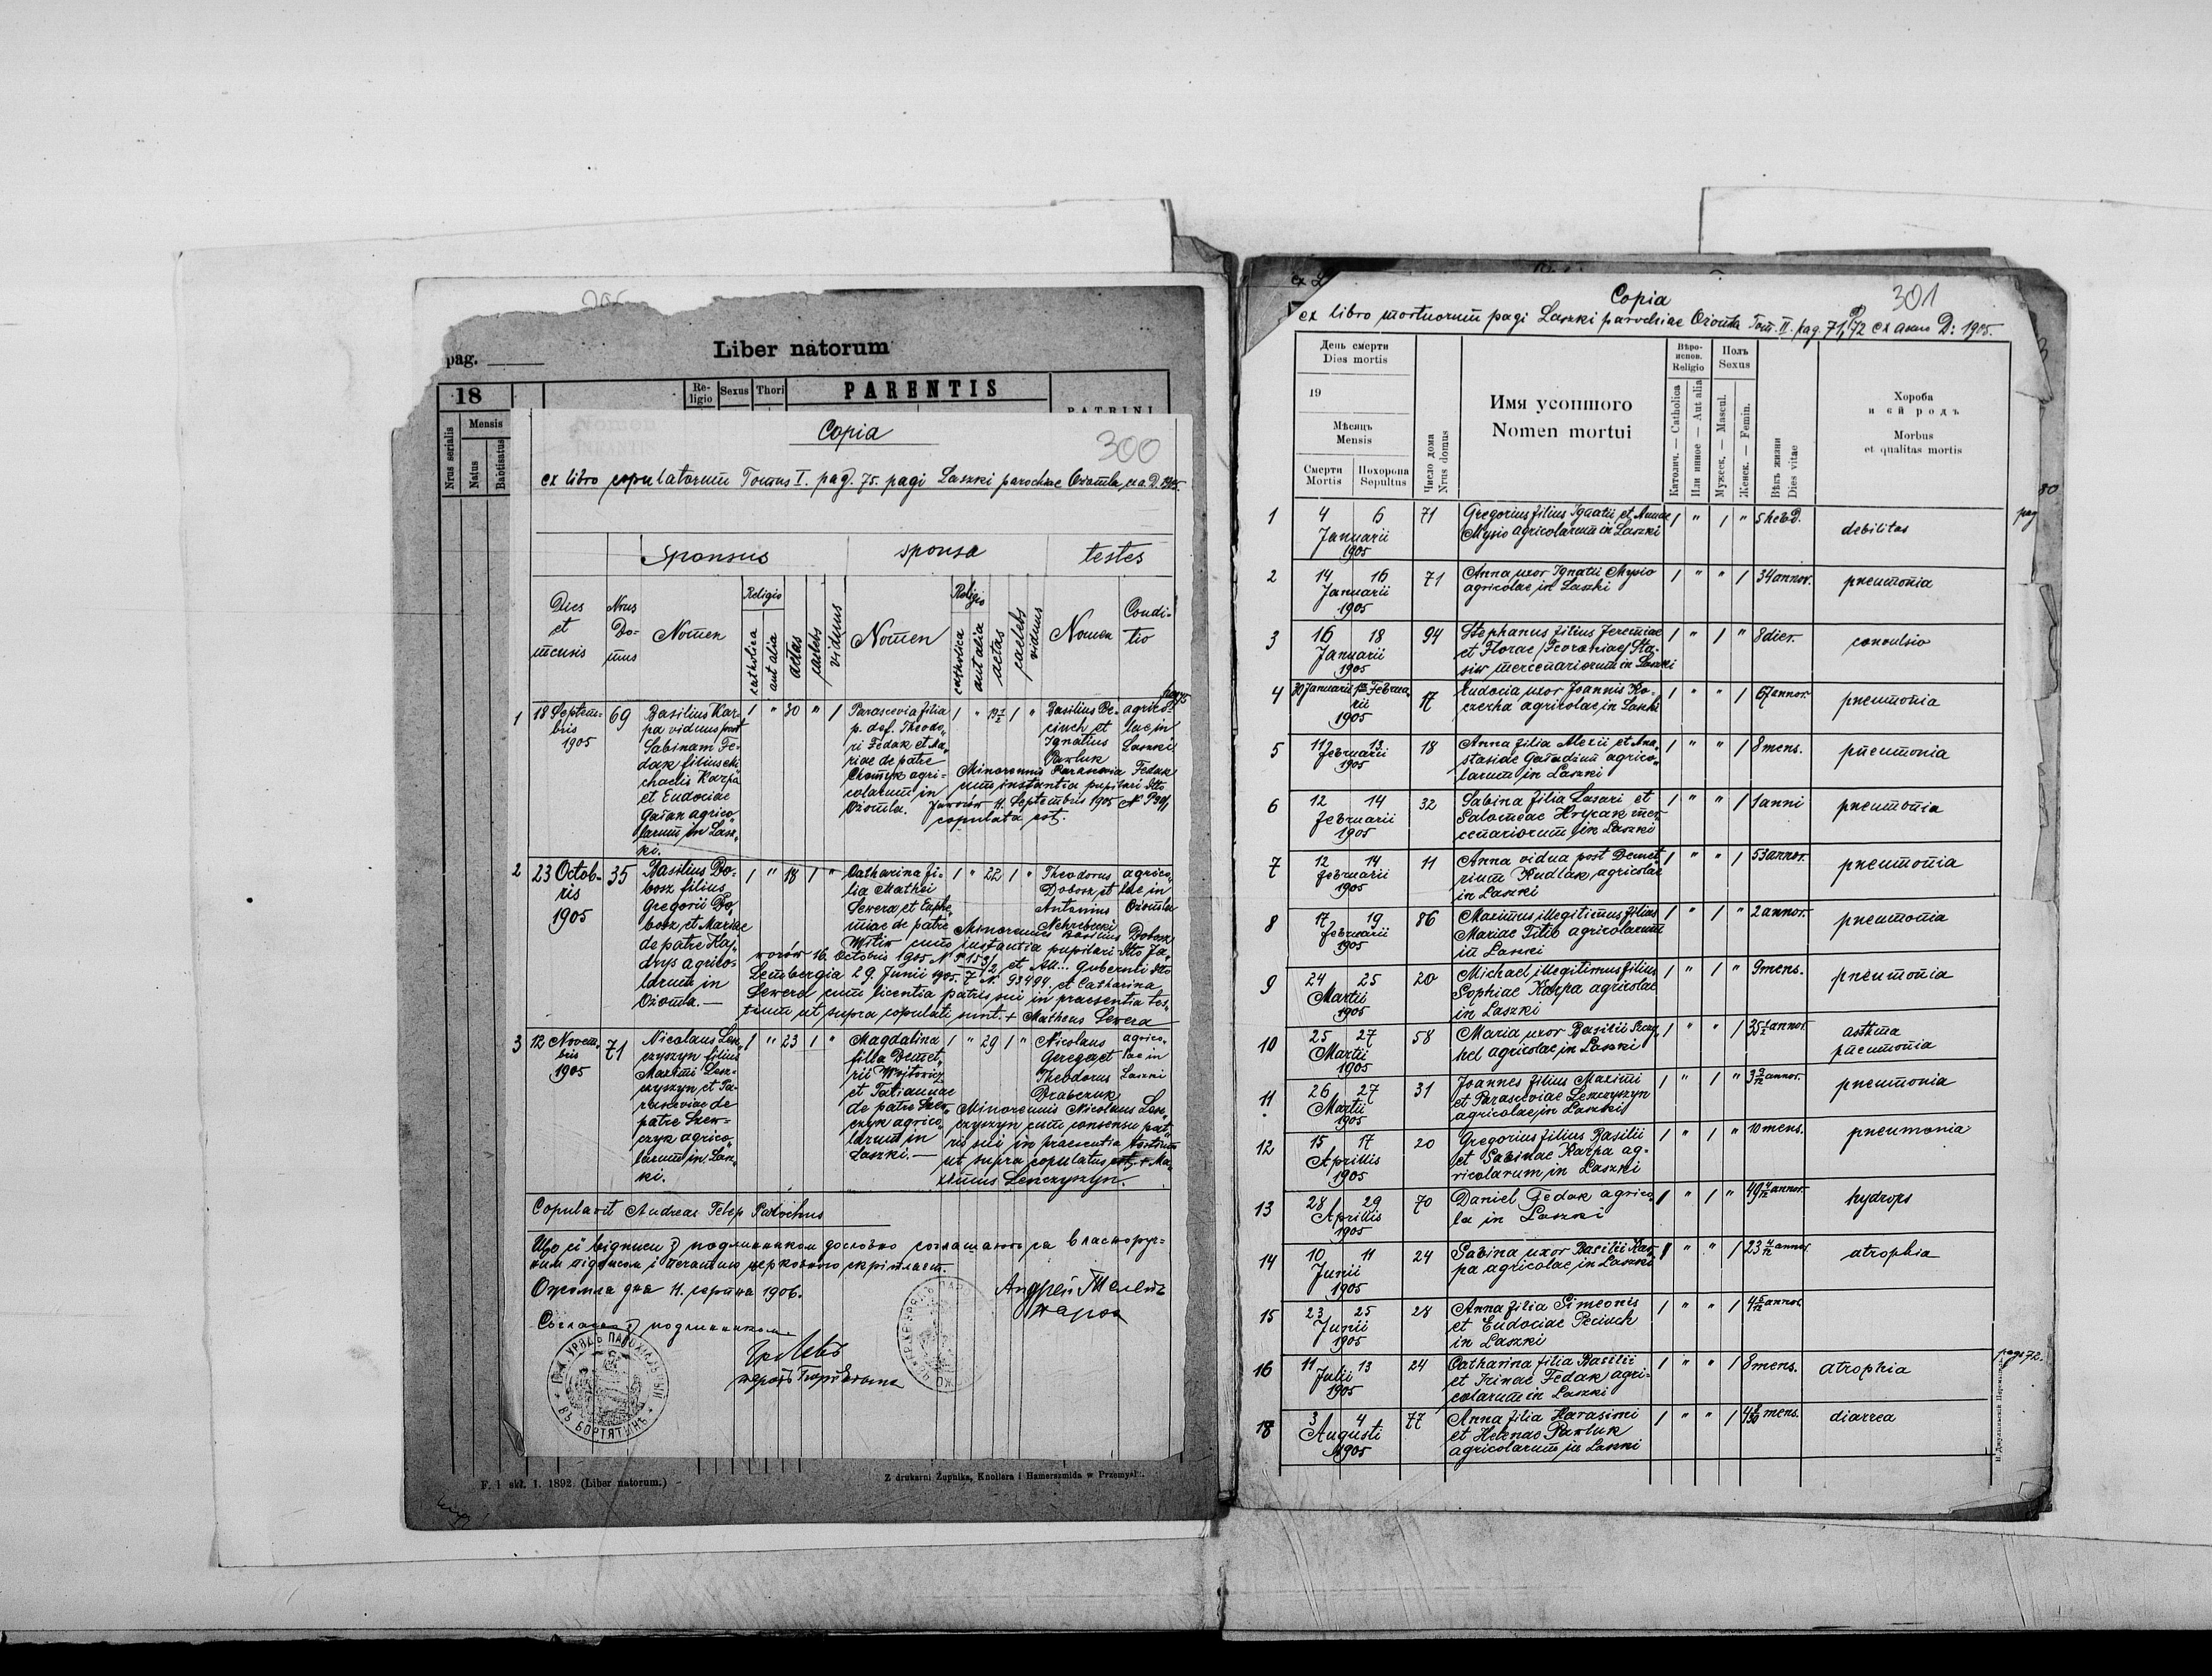 pag.
Liber natorum
18
Mensis
Nrus serialis
Natus
Baptisatus
Re-
ligio
Sexus
Thori
PARENTIS
PATRINI
Copia
300
ex libro copulatorum Tomus I. pag. 75. pagi Laszki parochiae Ożomla, ex a. D. 1905.
Sponsus
sponsa
testes
Dies
et
mensis
Nrus
Do-
mus
Nomen
Religio
catholica
aut alia
aetas
caelebs
viduus
Nomen
Religio
catholica
aut alia
aetas
caelebs
viduus
Nomen
Condi-
tio
1
18 Septem-
bris
1905
69
Basilius Kar-
pa viduus post
Sabinam Fe-
dak filius Mi
chaelis Karpa
et Eudociae
Gaian agrico
larum in Lasz
ki.
1 " 30 " 1
Parascevia filia
p. def. Theodo-
ri Fedak et Ma-
riae de patre
Chomyk agri-
colarum in
Ożomla.
1 " 1 "
Basilius Pe-
ciuch et
Ignatius
Pawluk
agrico-
lae in
Laszki
Minorennis Parascevia Fedak
cum instantia pupilari dtto
Jaworów 11. Septembris 1905 N
copulata est.
2
23 Octob-
ris
1905
35
Basilius Do-
bosz filius
Gregorii Do
bosz et Mariae
de patre Haj-
drys agrico-
larum in
Ożomla.—
1 " 18 1 "
Catharina fi-
lia Mathei
Sewera et Euphe
miae de patre
Witik
1 " 22 1 "
Theodorus
Dobosz et
Antonius
Nehrebecki
agrico-
lae in
Ożomla
Minorennis Basilius Dobosz
cum instantia pupilari dtto Ja-
worów 16. Octobris 1905 N P 153/2 et Alt... Gubernii dtto
Lembergia 29. Junii 1905. Z. N. 93494. et Catharina
Sewera cum licentia patris sui in praesentia tes-
tium ut supra copulati sunt. + Matheus Sewera
3
12 Novem-
bris
1905
71
Nicolaus Len-
czyszyn filius
Maximi Lesz-
czyszyn et Pa-
rasceviae de
patre Szew-
czyk agrico
larum in Lasz
ki.
1 " 23 1 "
Magdalina
filia Demet-
rii Wojtowicz
et Tatiannae
de patre Szew-
czyk agrico
larum in
Laszki.—
1 " 29 1 "
Nicolaus
Gerega et
Theodorus
Drabczuk
agrico-
lae in
Laszki
Minorennis Nicolaus Lesz-
czyszyn cum consensu pat-
ris sui in praesentia testium
ut supra copulatus est. + Ma-
ximus Lenczyszyn.
Copulavit Andreas Telep Parochus
Що сї відписи з подлинником дословно соглашають ся власноруч-
ним підписом і печатию церковного скріпляєт.
Ожомла дня 11. серпня 1906.
Андрей Телепъ
парох
Согласно з подлинником
ГР. КАТ. УРЯДЪ ПАРОХІЯЛЬНЫЙ
ВЪ БОРТЯТИНѢ
F. 1 skł. 1. 1892. (Liber natorum.)
Z drukarni Żupnika, Knollera i Hamerszmida w Przemyślu.
Copia
301
ex libro mortuorum pagi Laszki parochiae Ożomla Tom. II. pag. 71, 72 ex anno D: 1905.
День смерти
Dies mortis
19
Мѣсяць
Mensis
Смерти
Mortis
Похорона
Sepultus
Число дома
Nrus domus
Имя усопшого
Nomen mortui
Вѣро-
испов.
Religio
Католич. — Catholica
Или инное — Aut alia
Полъ
Sexus
Мужеск. — Mascul.
Женск. — Femin.
Вѣкъ жизни
Dies vitae
Хороба
и єй родъ
Morbus
et qualitas mortis
80
pag
1
4 6
Januarii
1905
71
Gregorius filius Ignatii et Annae
Mysio agricolarum in Laszki
1 " 1 "
5 hebd.
debilitas
2
14 16
Januarii
1905
71
Anna uxor Ignatii Mysio
agricolae in Laszki
1 " " 1
34 annor.
pneumonia
3
16 18
Januarii
1905
94
Stephanus filius Jeremiae
et Florae /Fevroniae/ Sta-
siw mercenariorum in Laszki
1 " 1 "
8 dier.
convulsio
4
30 Januarii Februa
rii
1905
17
Eudocia uxor Joannis Ko-
czerha agricolae in Laszki
1 " " 1
67 annor.
pneumonia
5
11 13
Februarii
1905
18
Anna filia Alexii et Ana-
stasiae Gaiadium agrico-
larum in Laszki
1 " " 1
8 mens.
pneumonia
6
12 14
Februarii
1905
32
Sabina filia Lasari et
Salomeae Hrycak mer-
cenariorum in Laszki
1 " " 1
1 anni
pneumonia
7
12 14
Februarii
1905
11
Anna vidua post Demet
rium Kudlak agricolae
in Laszki
1 " " 1
53 annor.
pneumonia
8
17 19
Februarii
1905
86
Maximus illegitimus filius
Mariae Titko agricolarum
in Laszki
1 " 1 "
2 annor.
pneumonia
9
24 25
Martii
1905
20
Michael illegitimus filius
Sophiae Karpa agricolae
in Laszki
1 " 1 "
9 mens.
pneumonia
10
25 27
Martii
1905
58
Maria uxor Basilii
hel agricolae in Laszki
1 " " 1
annor.
asthma
pneumonia
11
26 27
Martii
1905
31
Joannes filius Maximi
et Parasceviae Lenczyszyn
agricolae in Laszki
1 " 1 "
annor.
pneumonia
12
15 17
Aprilis
1905
20
Gregorius filius Basilii
et Sabinae Karpa ag-
ricolarum in Laszki
1 " 1 "
10 mens.
pneumonia
13
28 29
Aprilis
1905
70
Daniel Fedak agrico-
la in Laszki
1 " 1 "
annor.
hydrops
14
10 11
Junii
1905
24
Sabina uxor Basilii Kar-
pa agricolae in Laszki
1 " " 1
annor.
atrophia
15
23 25
Junii
1905
28
Anna filia Simeonis
et Eudociae Peciuch
in Laszki
1 " " 1
annor.
16
11 13
Julii
1905
24
Catharina filia Basilii
et Irinae Fedak agri-
colarum in Laszki
1 " " 1
8 mens.
atrophia
page 72.
18
3 4
Augusti
1905
77
Anna filia Harasimi
et Helenae Pawluk
agricolarum in Laszki
1 " " 1
mens.
diarrea